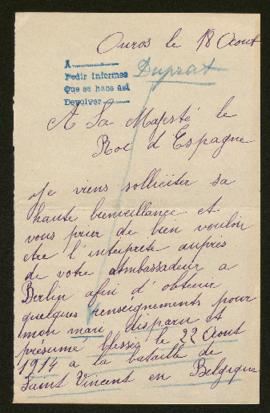 Ouros le 18 Aout
A
Pedir informes
Que se hace así
Devolver
Duprat
A Sa Majesté le
Roi d'Espagne
Je viens solliciter sa
haute bienveillance et
vous prier de bien vouloir
etre l'interprete auprès
de votre ambassadeur a
Berlin afin d'obtenir
quelques renseignements pour
mon mari, disparu et
présumé blessé le 22 Aout
1914 a la bataille de
Saint Vincent en Belgique